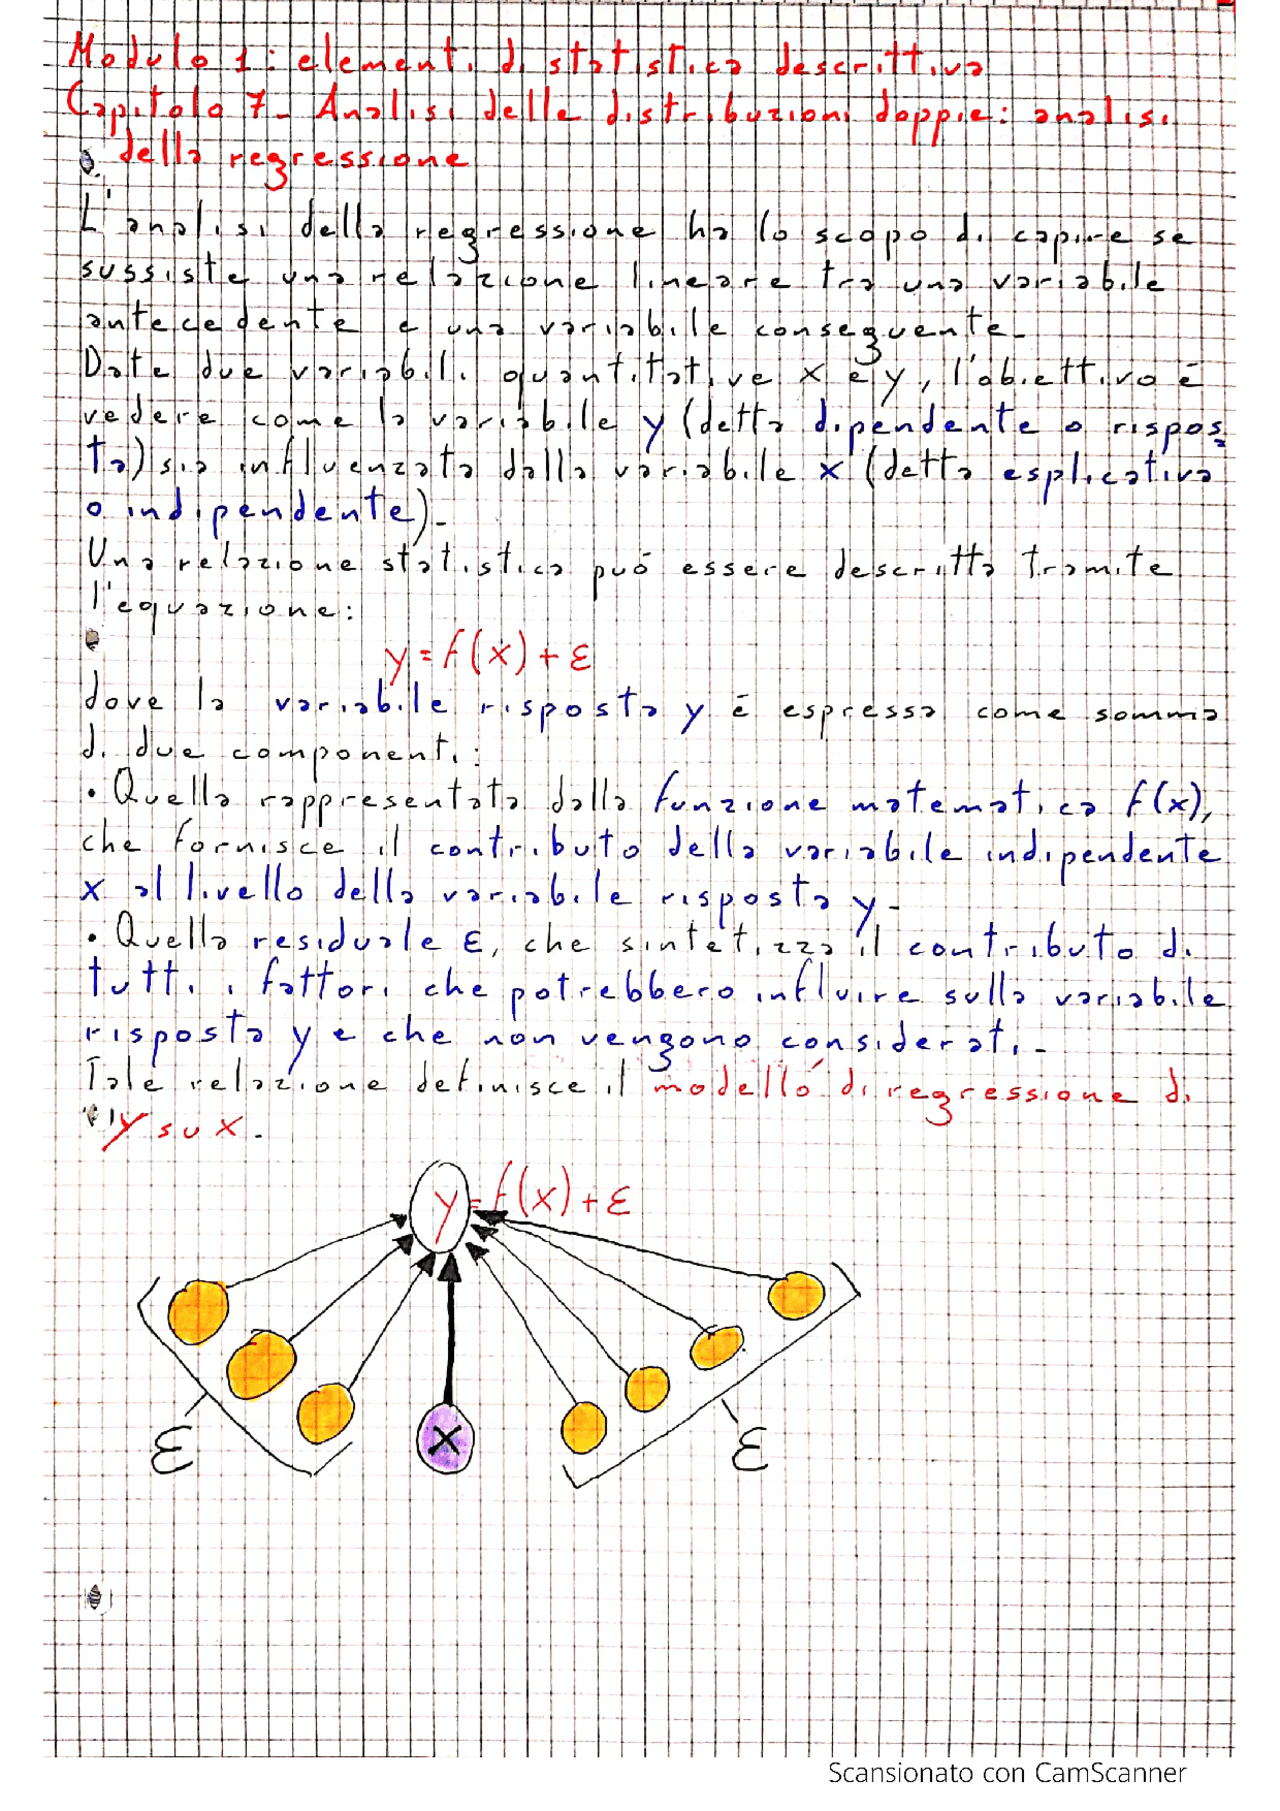 Modulo 1: elementi di statistica descrittiva
Capitolo 7- Analisi delle distribuzioni doppie: analisi
della regressione
L'analisi della regressione ha lo scopo di capire se
sussiste una relazione lineare tra una variabile
antecedente e una variabile conseguente-
Date due variabili quantitative x e y, l'obiettivo è
vedere come la variabile y (detta dipendente o rispos
ta) sia influenzata dalla variabile x (detta esplicativa
o indipendente)-
Una relazione statistica può essere descritta tramite
l'equazione:
y=f(x)+ε
dove la variabile risposta y è espressa come somma
di due componenti:
• Quella rappresentata dalla funzione matematica f(x),
che fornisce il contributo della variabile indipendente
x al livello della variabile risposta y-
• Quella residuale ε, che sintetizza il contributo di
tutti i fattori che potrebbero influire sulla variabile
risposta y e che non vengono considerati-
Tale relazione definisce il modello di regressione di
y su x.
y=f(x)+ε
ε
x
ε
Scansionato con CamScanner